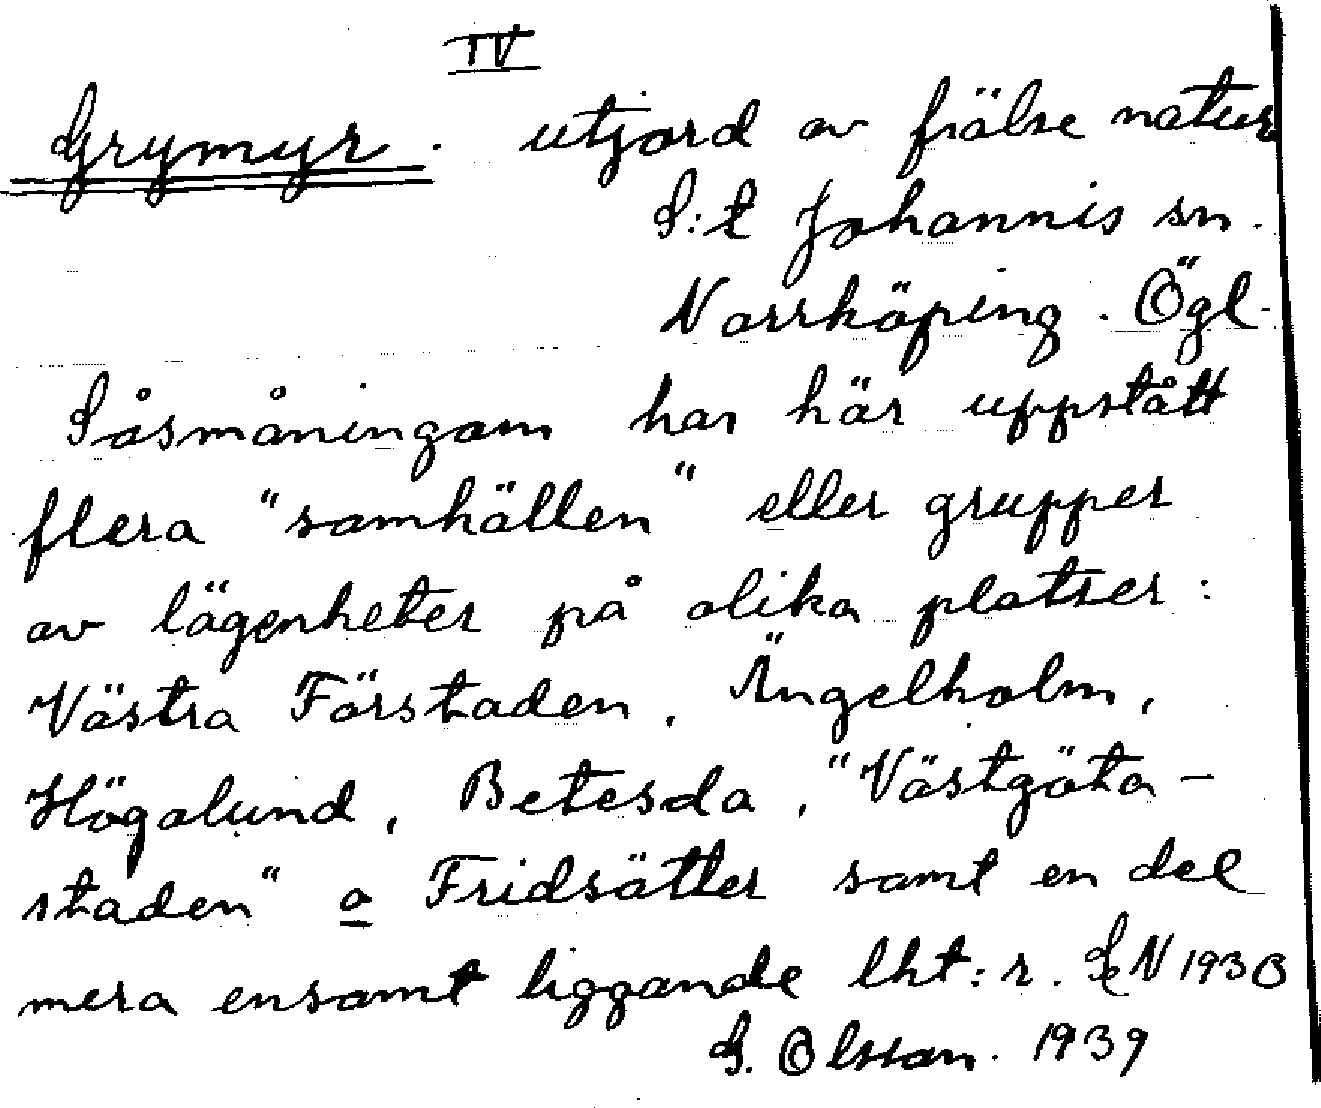 IV
Grymyr. utjord av frälse natur
S:t Johannis sn.
Norrköping. Ögl.
Såsmåningom har här uppstått
flera "samhällen" eller grupper
av lägenheter på olika platser:
Västra Förstaden, Ängelholm,
Högalund, Betesda, "Västgöta-
staden" o Fridsätter samt en del
mera ensamt liggande lht:r. 1938
G. Olsson. 1939